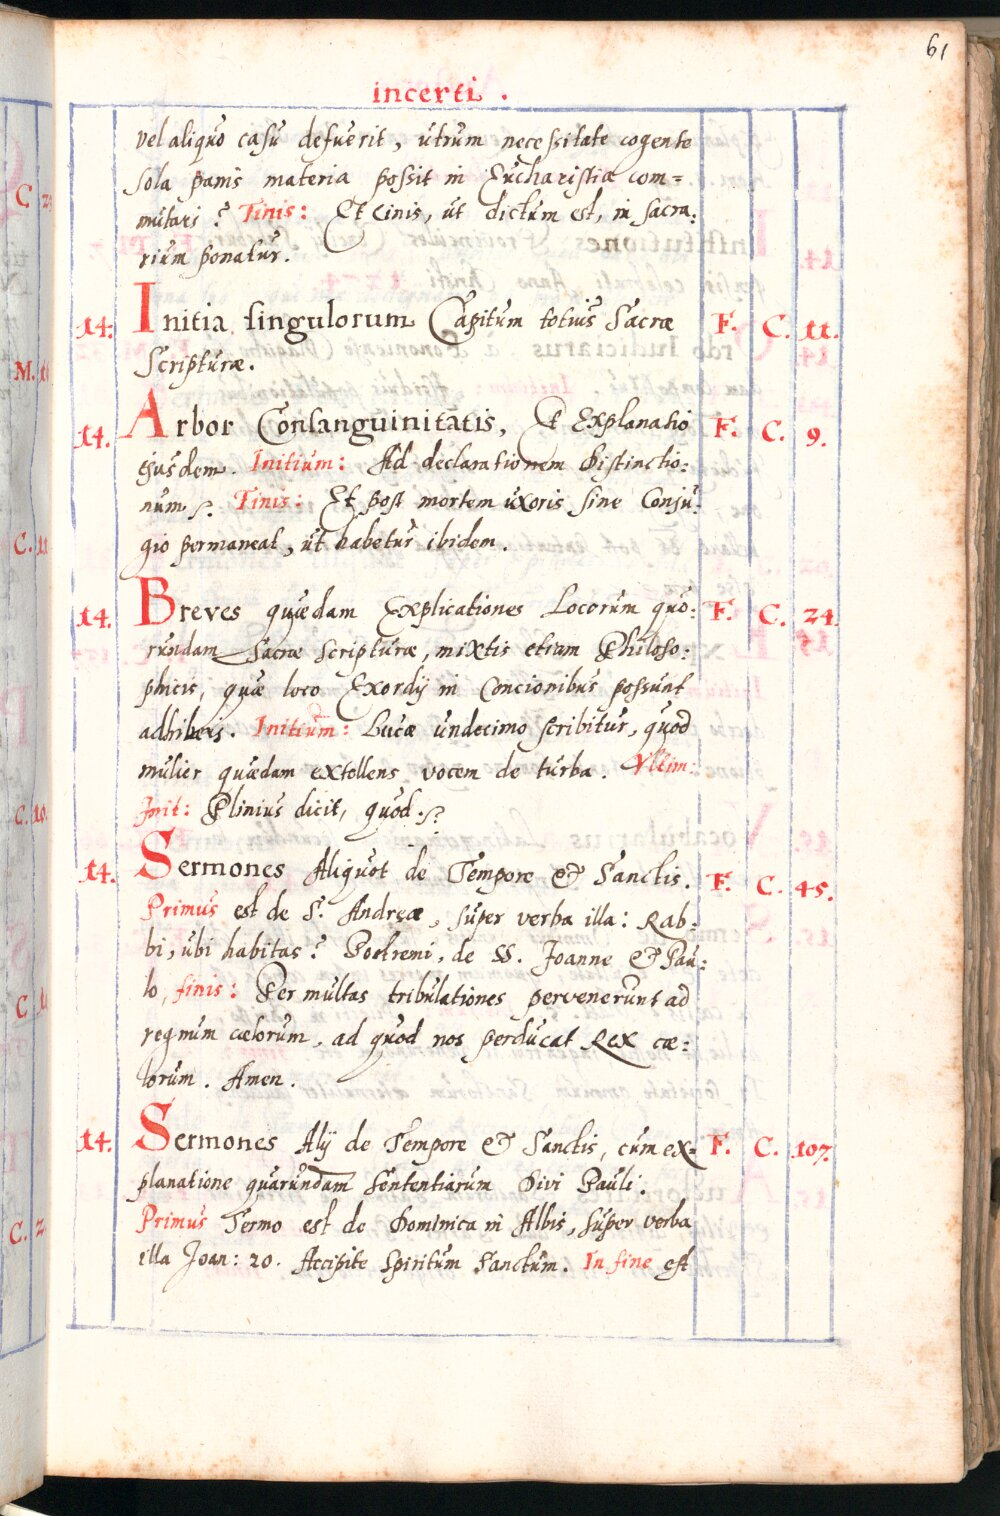 61
incerti.
vel aliquo casu defuerit, utrum necessitate cogente
sola panis materia possit in Eucharistia com=
mutari? Finis: Et cinis, ut dictum est, in sacra:
rium ponatur.
14. Initia singulorum Capitum totius Sacræ F. C. 11.
Scripturæ.
14. Arbor Consanguinitatis, Et Explanatio F. C. 9.
ejusdem. Initium: Ad declarationem Distinctio:
num. Finis: Et post mortem uxoris sine Conju:
gio permaneat, ut habetur ibidem.
14. Breves quædam Explicationes Locorum quo: F. C. 24.
rundam Sacræ Scripturæ, mixtis etiam Philoso:
phicis, quæ loco Exordij in Concionibus possunt
adhiberi. Initium: Lucæ undecimo scribitur, quod
mulier quædam extollens vocem de turba. Ultim:
Init: Plinius dicit, quod.
14. Sermones Aliquot de Tempore & Sanctis. F. C. 45.
Primus est de S. Andreæ, super verba illa: Rab:
bi, ubi habitas? Postremi, de SS. Joanne & Pau:
lo, finis: Per multas tribulationes pervenerunt ad
regnum cælorum, ad quod nos perducat Rex cæ:
lorum. Amen.
14. Sermones Alij de Tempore & Sanctis, cum ex= F. C. 107.
planatione quarundam Sententiarum Divi Pauli.
Primus Sermo est de Dominica in Albis, super verba
illa Joan: 20. Accipite Spiritum Sanctum. In fine est